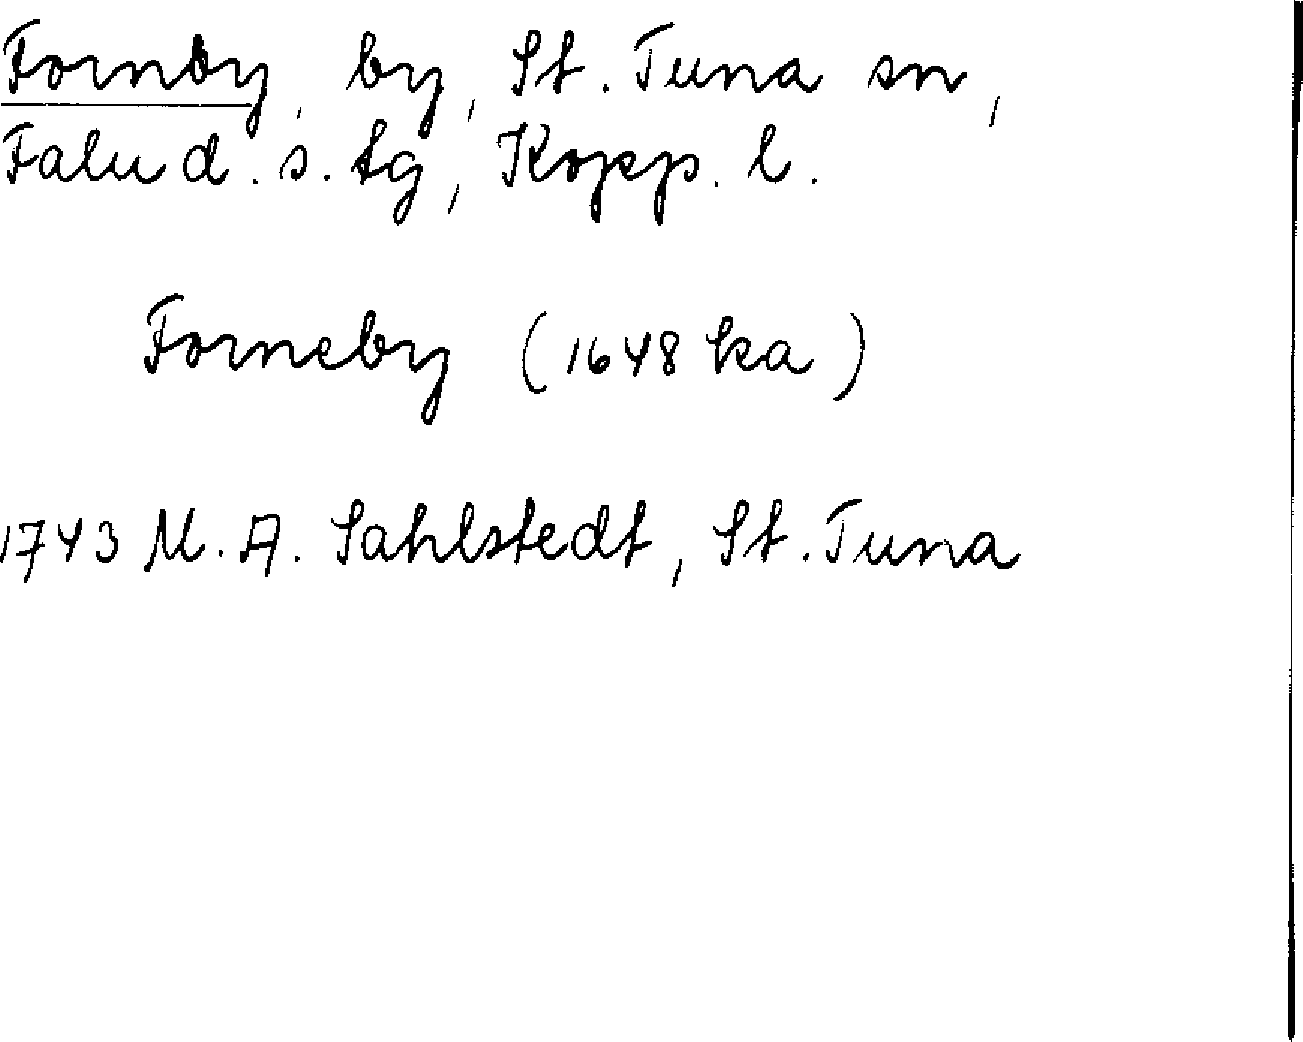 Fornby, by, St. Tuna sn,
Falu d. s. tg, Kopp. l.
Forneby (1648 ka)
1743 M. A. Sahlstedt, St. Tuna